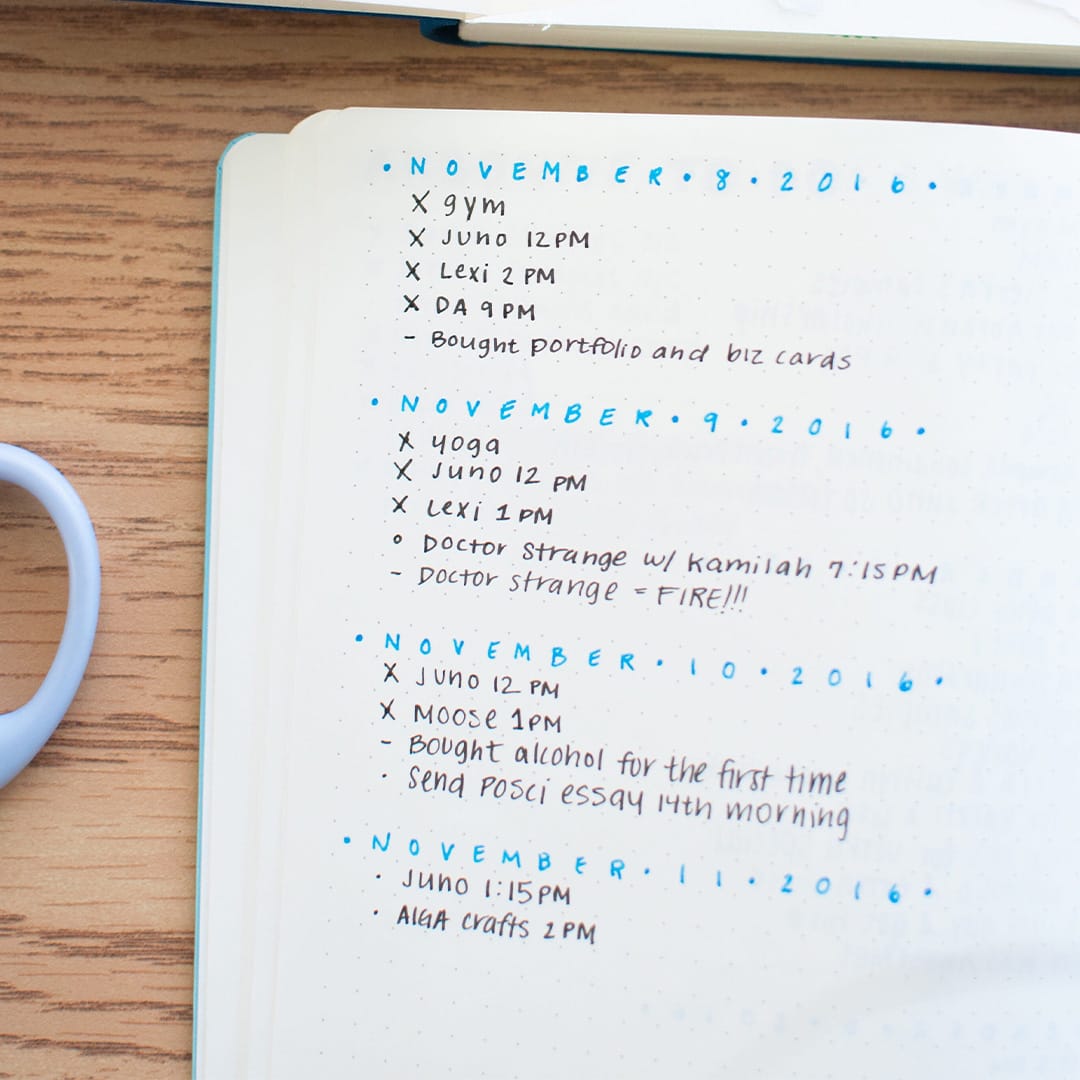 • NOVEMBER • 8 • 2016 •
X gym
X Juno 12 PM
X Lexi 2 PM
X DA 9 PM
- Bought portfolio and biz cards
• NOVEMBER • 9 • 2016 •
X yoga
X Juno 12 PM
X Lexi 1 PM
° Doctor Strange w/ Kamilah 7:15 PM
- Doctor Strange = FIRE!!!
• NOVEMBER • 10 • 2016 •
X Juno 12 PM
X Moose 1 PM
- Bought alcohol for the first time
· Send PoSci essay 14th morning
• NOVEMBER • 11 • 2016 •
· Juno 1:15 PM
· AIGA crafts 2 PM